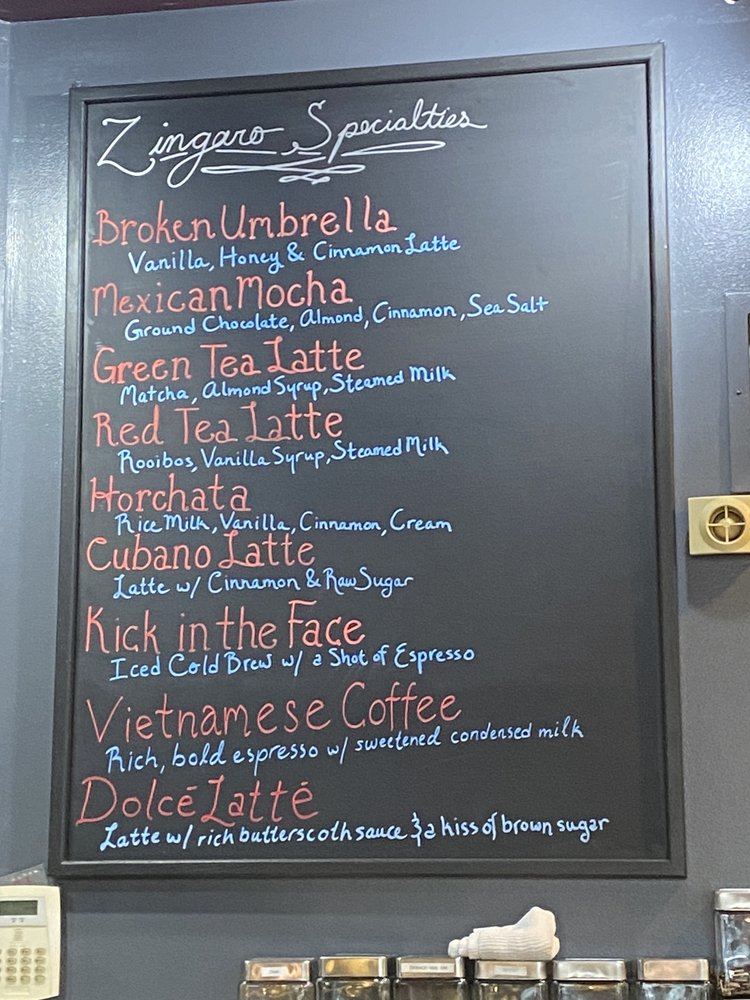 Zingaro Specialties
Broken Umbrella
Vanilla, Honey & Cinnamon Latte
Mexican Mocha
Ground Chocolate, Almond, Cinnamon, Sea Salt
Green Tea Latte
Matcha, Almond Syrup, Steamed Milk
Red Tea Latte
Rooibos, Vanilla Syrup, Steamed Milk
Horchata
Rice Milk, Vanilla, Cinnamon, Cream
Cubano Latte
Latte w/ Cinnamon & Raw Sugar
Kick in the Face
Iced Cold Brew w/ a Shot of Espresso
Vietnamese Coffee
Rich, bold espresso w/ sweetened condensed milk
Dolcé Latté
Latte w/ rich butterscoth sauce & a kiss of brown sugar